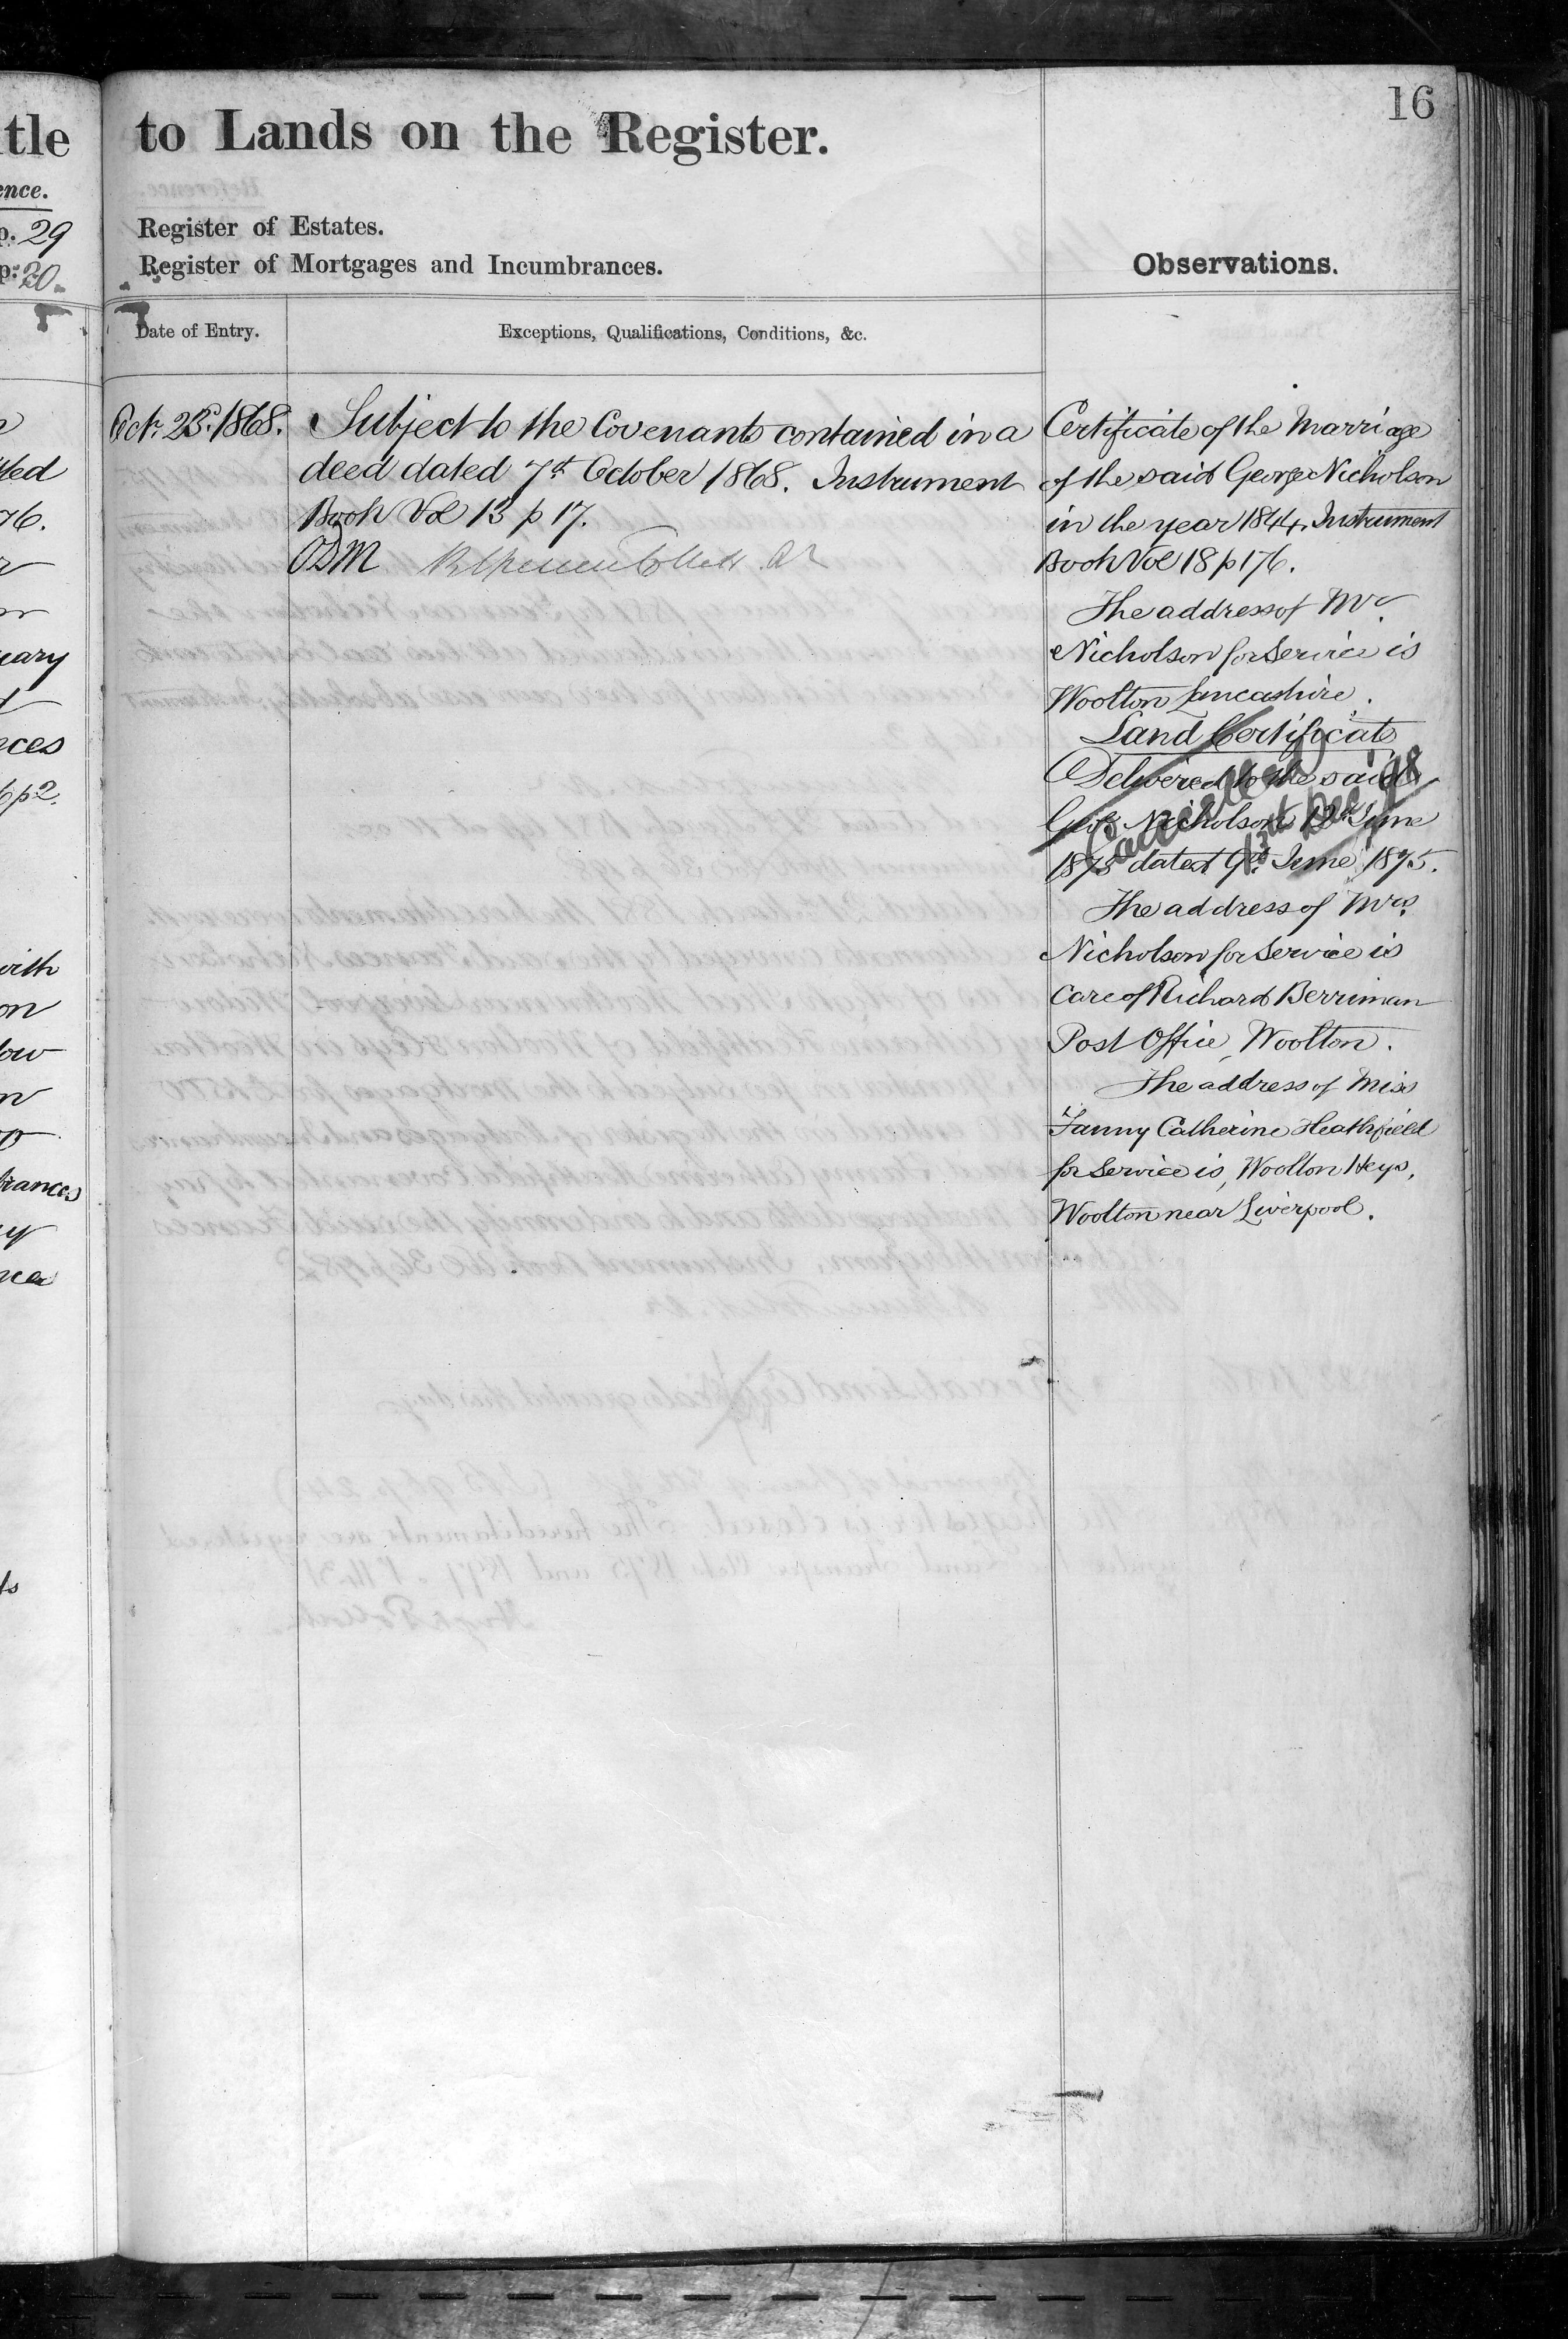 16
tle to Lands on the Register.
ence.
p. 29 Register of Estates.
p. 20. Register of Mortgages and Incumbrances.
Observations.
Date of Entry. Exceptions, Qualifications, Conditions, &c.
Octr. 23d. 1868. Subject to the Covenants contained in a
deed dated 7th October 1868. Instrument
Book Vol 13 p 17.
Certificate of the Marriage
of the said George Nicholson
in the year 1844. Instrument
Book Vol 18 p 176.
The address of Mr.
Nicholson for Service is
Woolton Lancashire.
Land Certificate
Delivered to the said
Geo. Nicholson 12th June
1875 dated 9th June 1875.
Cancelled
The address of Mrs.
Nicholson for Service is
Care of Richard Berriman
Post Office, Woolton.
The address of Miss
Fanny Catherine Heathfield
for Service is, Woolton Heys,
Woolton near Liverpool.
76.
p 2.